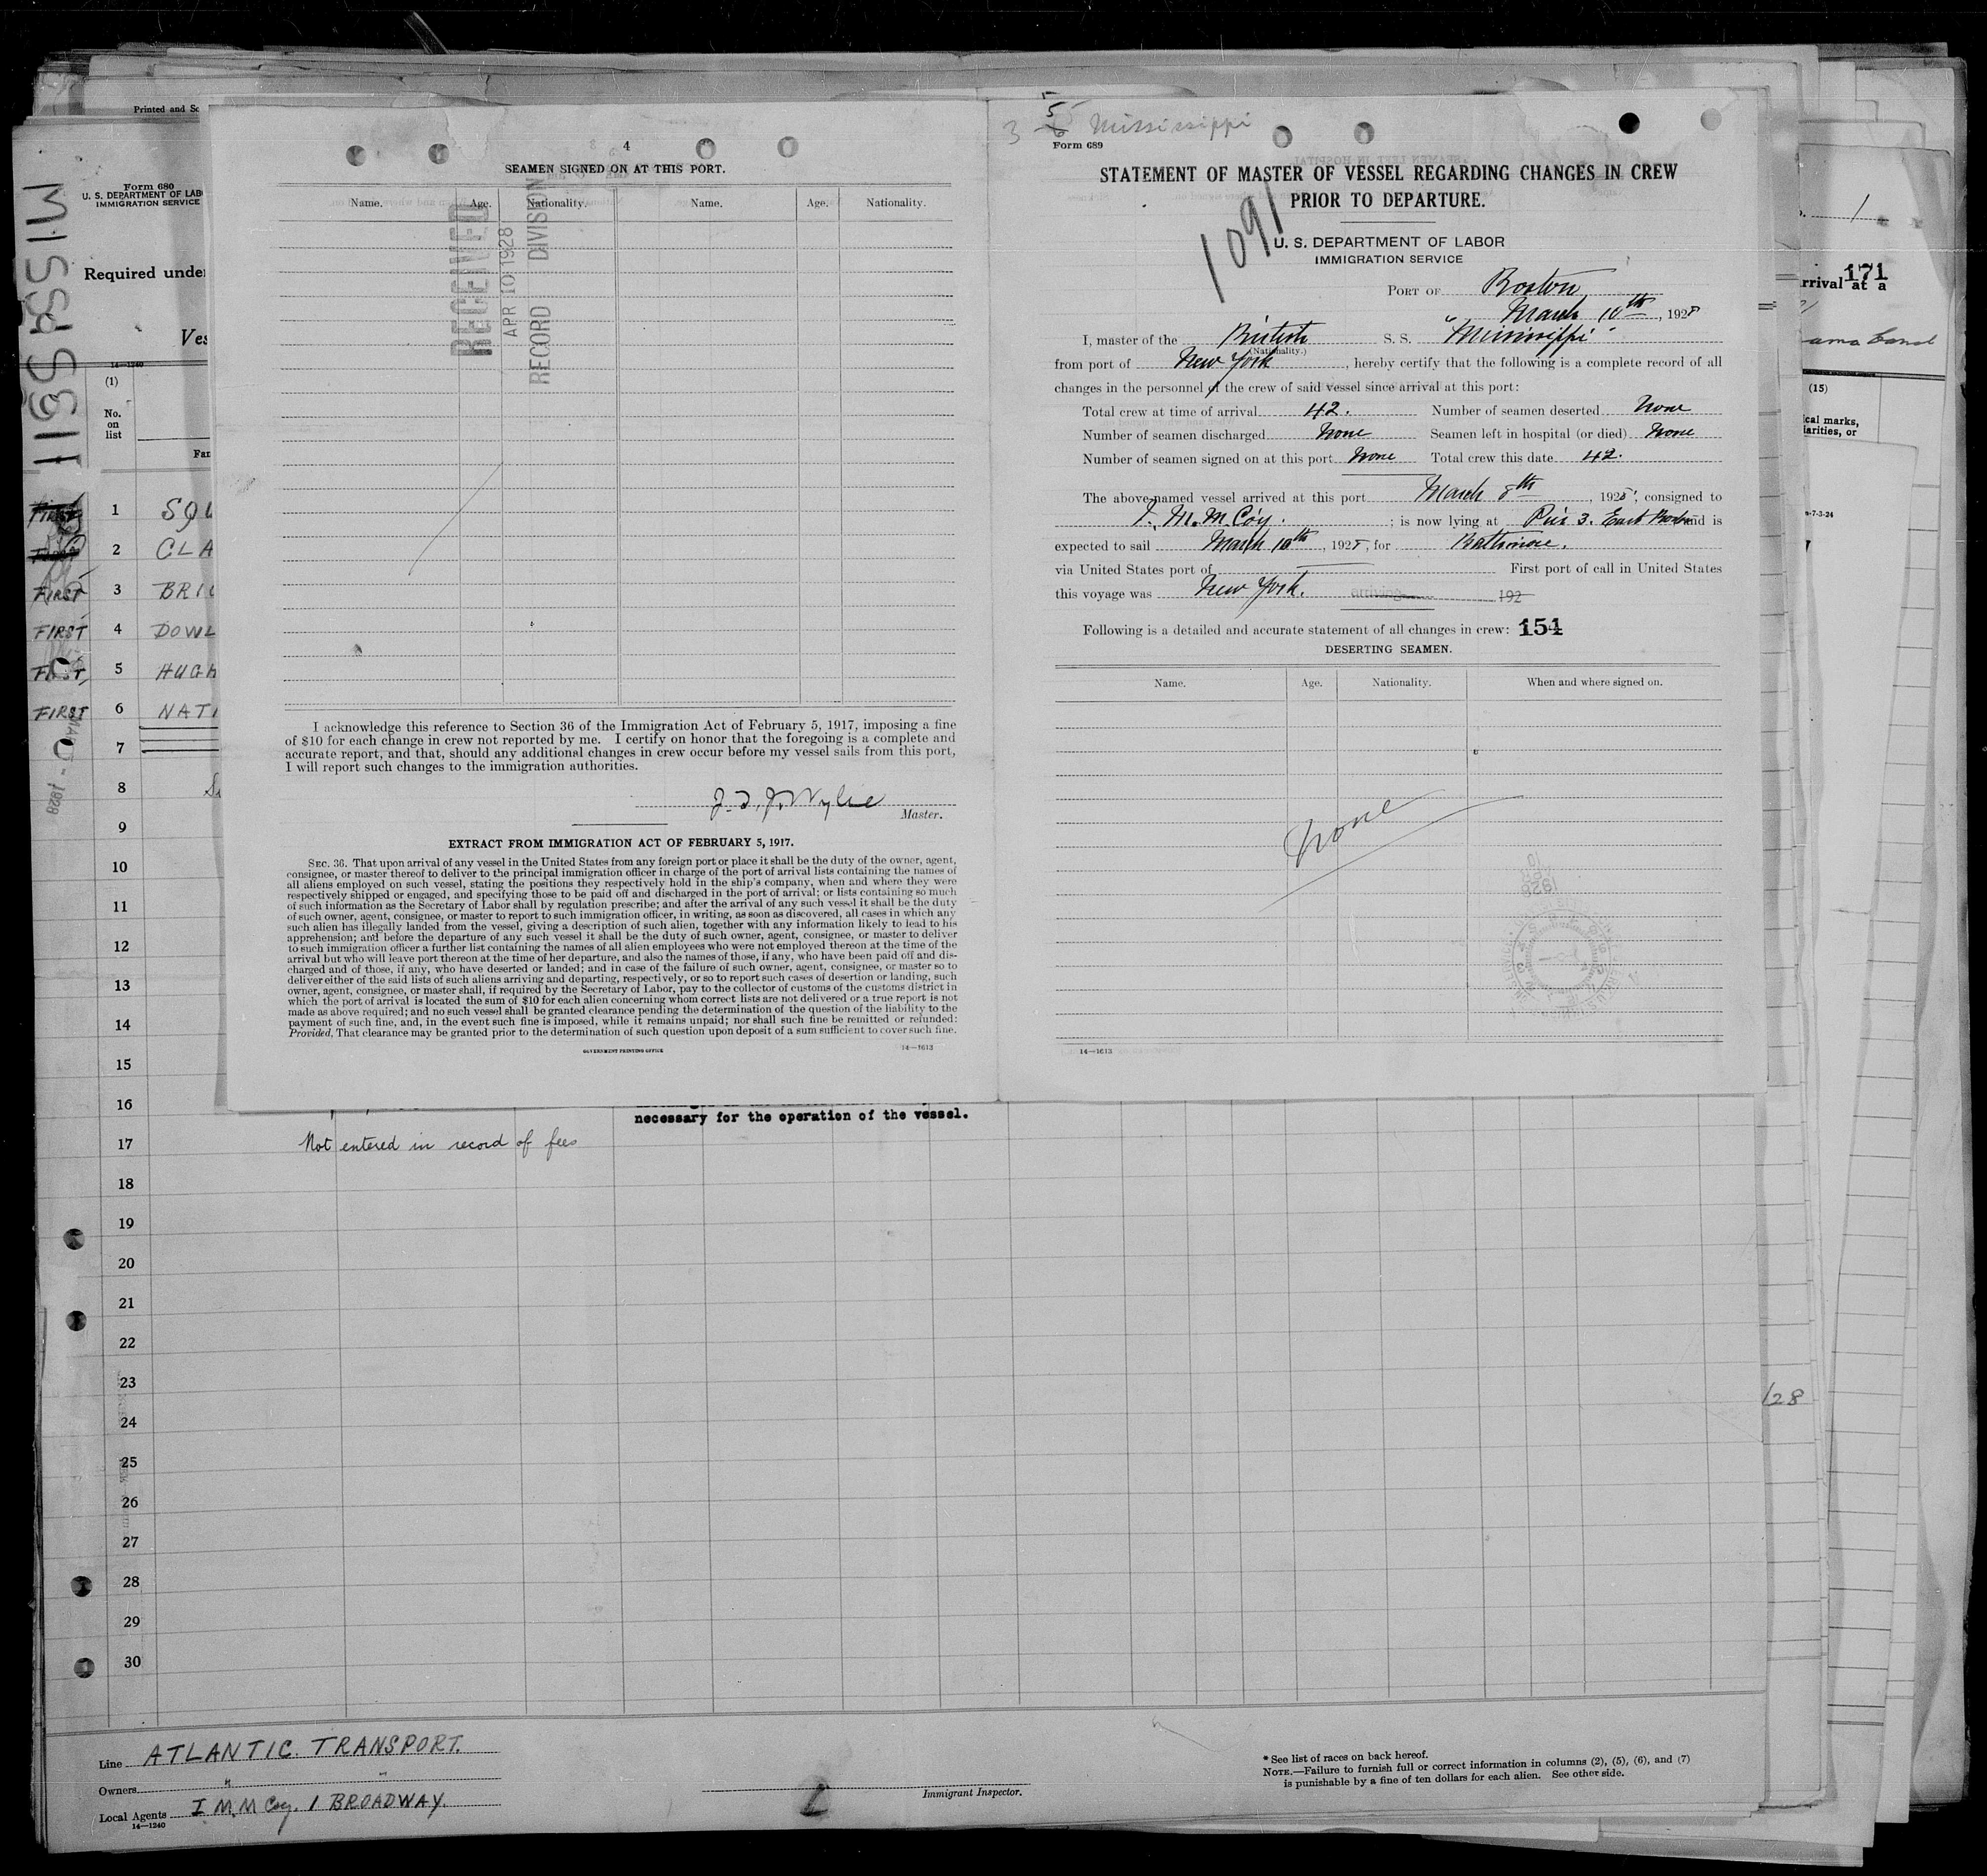 Printed and
Form 680
U. S. DEPARTMENT OF LAB
IMMIGRATION SERVICE
Required unde
Ves
14—1240
(1)
No.
on
list
MISSISSIPPI
FIRST 1 SQU
FIRST 2 CLA
FIRST 3 BRIG
FIRST 4 DOWL
FIRST 5 HUGH
FIRST 6 NATI
7
8
9
10
11
12
13
14
15
16
17 Not entered in record of fees
18
19
20
21
22
23
24
25
26
27
28
29
30
necessary for the operation of the vessel.
Line ATLANTIC TRANSPORT.
Owners " "
Local Agents I M.M Coy. 1 BROADWAY.
14—1240
Immigrant Inspector.
* See list of races on back hereof.
NOTE.—Failure to furnish full or correct information in columns (2), (5), (6), and (7)
is punishable by a fine of ten dollars for each alien. See other side.
4
SEAMEN SIGNED ON AT THIS PORT.
Name. Age. Nationality. Name. Age. Nationality.
RECEIVED
APR 10 1928
RECORD DIVISION
I acknowledge this reference to Section 36 of the Immigration Act of February 5, 1917, imposing a fine
of $10 for each change in crew not reported by me. I certify on honor that the foregoing is a complete and
accurate report, and that, should any additional changes in crew occur before my vessel sails from this port,
I will report such changes to the immigration authorities.
Wylie
Master.
EXTRACT FROM IMMIGRATION ACT OF FEBRUARY 5, 1917.
SEC. 36. That upon arrival of any vessel in the United States from any foreign port or place it shall be the duty of the owner, agent,
consignee, or master thereof to deliver to the principal immigration officer in charge of the port of arrival lists containing the names of
all aliens employed on such vessel, stating the positions they respectively hold in the ship's company, when and where they were
respectively shipped or engaged, and specifying those to be paid off and discharged in the port of arrival; or lists containing so much
of such information as the Secretary of Labor shall by regulation prescribe; and after the arrival of any such vessel it shall be the duty
of such owner, agent, consignee, or master to report to such immigration officer, in writing, as soon as discovered, all cases in which any
such alien has illegally landed from the vessel, giving a description of such alien, together with any information likely to lead to his
apprehension; and before the departure of any such vessel it shall be the duty of such owner, agent, consignee, or master to deliver
to such immigration officer a further list containing the names of all alien employees who were not employed thereon at the time of the
arrival but who will leave port thereon at the time of her departure, and also the names of those, if any, who have been paid off and dis-
charged and of those, if any, who have deserted or landed; and in case of the failure of such owner, agent, consignee, or master so to
deliver either of the said lists of such aliens arriving and departing, respectively, or so to report such cases of desertion or landing, such
owner, agent, consignee, or master shall, if required by the Secretary of Labor, pay to the collector of customs of the customs district in
which the port of arrival is located the sum of $10 for each alien concerning whom correct lists are not delivered or a true report is not
made as above required; and no such vessel shall be granted clearance pending the determination of the question of the liability to the
payment of such fine, and, in the event such fine is imposed, while it remains unpaid; nor shall such fine be remitted or refunded:
Provided, That clearance may be granted prior to the determination of such question upon deposit of a sum sufficient to cover such fine.
GOVERNMENT PRINTING OFFICE
14—1613
Mississippi
Form 689
STATEMENT OF MASTER OF VESSEL REGARDING CHANGES IN CREW
PRIOR TO DEPARTURE.
1091
U. S. DEPARTMENT OF LABOR
IMMIGRATION SERVICE
PORT OF Boston
March 10th, 1928
I, master of the British S. S. "Mississippi"
(Nationality.)
from port of New York, hereby certify that the following is a complete record of all
changes in the personnel of the crew of said vessel since arrival at this port:
Total crew at time of arrival 42. Number of seamen deserted None
Number of seamen discharged None Seamen left in hospital (or died) None
Number of seamen signed on at this port None Total crew this date 42.
The above-named vessel arrived at this port March 8th, 1928, consigned to
I. M. M. Coy.; is now lying at Pier 3. East Boston and is
expected to sail March 10th, 1928, for Baltimore.
via United States port of First port of call in United States
this voyage was New York. arriving 192
Following is a detailed and accurate statement of all changes in crew: 154
DESERTING SEAMEN.
Name. Age. Nationality. When and where signed on.
None
14—1613
1
171
rrival at a
ama Canal
(15)
ical marks,
larities, or
128